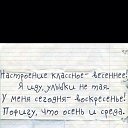 Настроение классное- весеннее!
Я иду, улыбки не тая.
У меня сегодня- воскресенье!
Пофигу, что осень и среда.